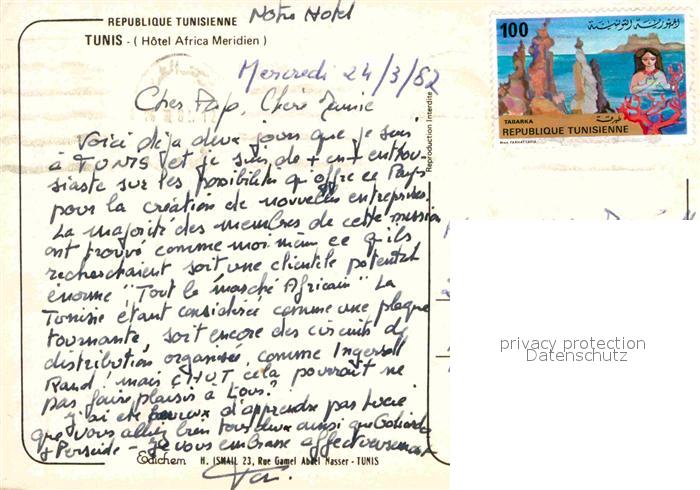 Notre Hotel
REPUBLIQUE TUNISIENNE
TUNIS - (Hôtel Africa Meridien)
Mercredi 24/3/82
Cher Papo, Chère Mamie
Voici déja deux jours que je suis
à TUNIS et je suis de + en + enthou-
siaste sur les possibilités qu'offre ce Pays
pour la création de nouvelles entreprises.
La majorité des membres de cette mission
ont trouvé comme moi même ce qu'ils
recherchaient soit une clientèle potentiel
énorme "Tout le marché Africain" La
Tunisie étant considérée comme une plaque
tournante, soit encore des circuits de
distribution organisés, comme Ingersoll
Rand! mais CHUT, cela pourrait ne
pas faire plaisir à tous?
j'ai été heureux d'apprendre par
que vous alliez bien tous deux ainsi que
+ je vous embrasse affectueusement
Edichem H. ISMAIL 23, Rue Gamel Abdel Nasser - TUNIS
Reproduction Interdite
100
الجمهورية التونسية
TABARKA طبرقة
REPUBLIQUE TUNISIENNE
privacy protection
Datenschutz